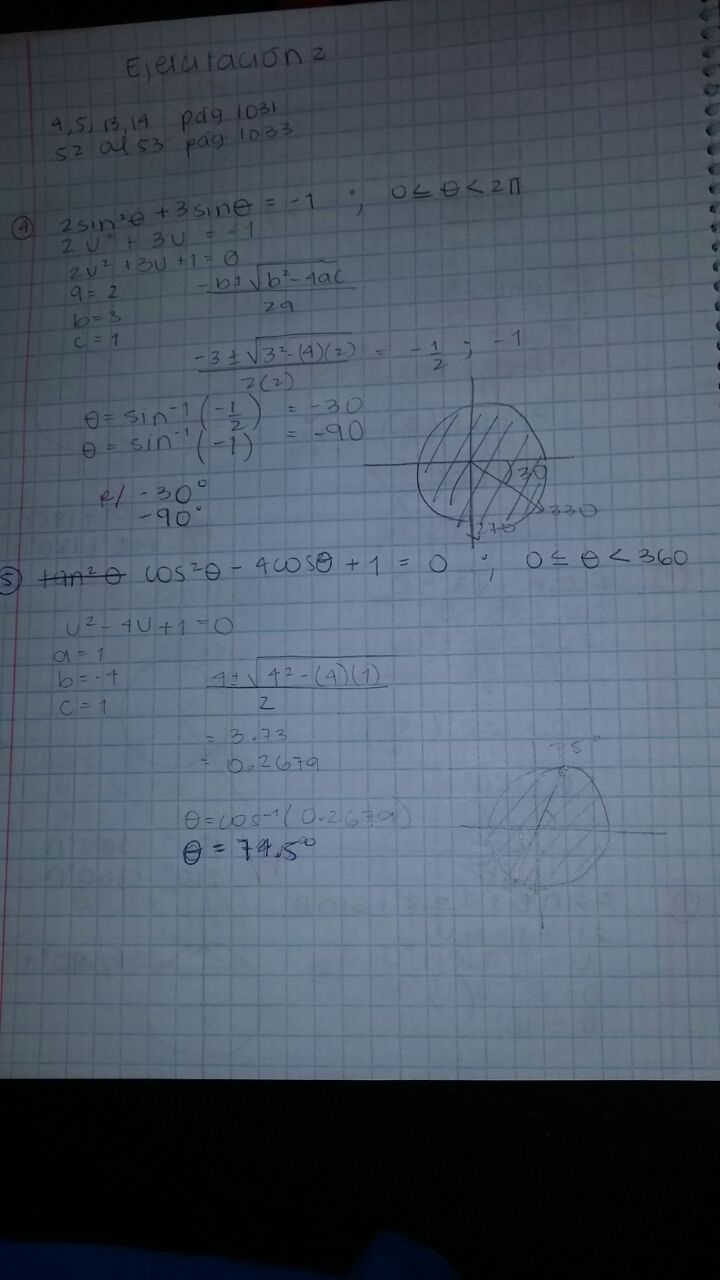 Ejercitación 2
4, 5, 13, 14 pág 1031
52 al 53 pág. 1033
④ 2sin²θ + 3sinθ = -1 ; 0 ≤ θ < 2π
2U² + 3U = -1
2U² + 3U + 1 = 0
a = 2
b = 3
c = 1
-b ± √b² - 4ac / 2a
-3 ± √3² - (4)(2) / 2(2) = -1/2 ; -1
θ = sin⁻¹(-1/2) = -30
θ = sin⁻¹(-1) = -90
R/ -30°
-90°
30
330
270
⑤ tan²θ cos²θ - 4cosθ + 1 = 0 ; 0 ≤ θ < 360
U² - 4U + 1 = 0
a = 1
b = -4
c = 1
4 ± √4² - (4)(1) / 2
= 3.73
= 0.2679
75°
θ = cos⁻¹(0.2679)
θ = 74.5°